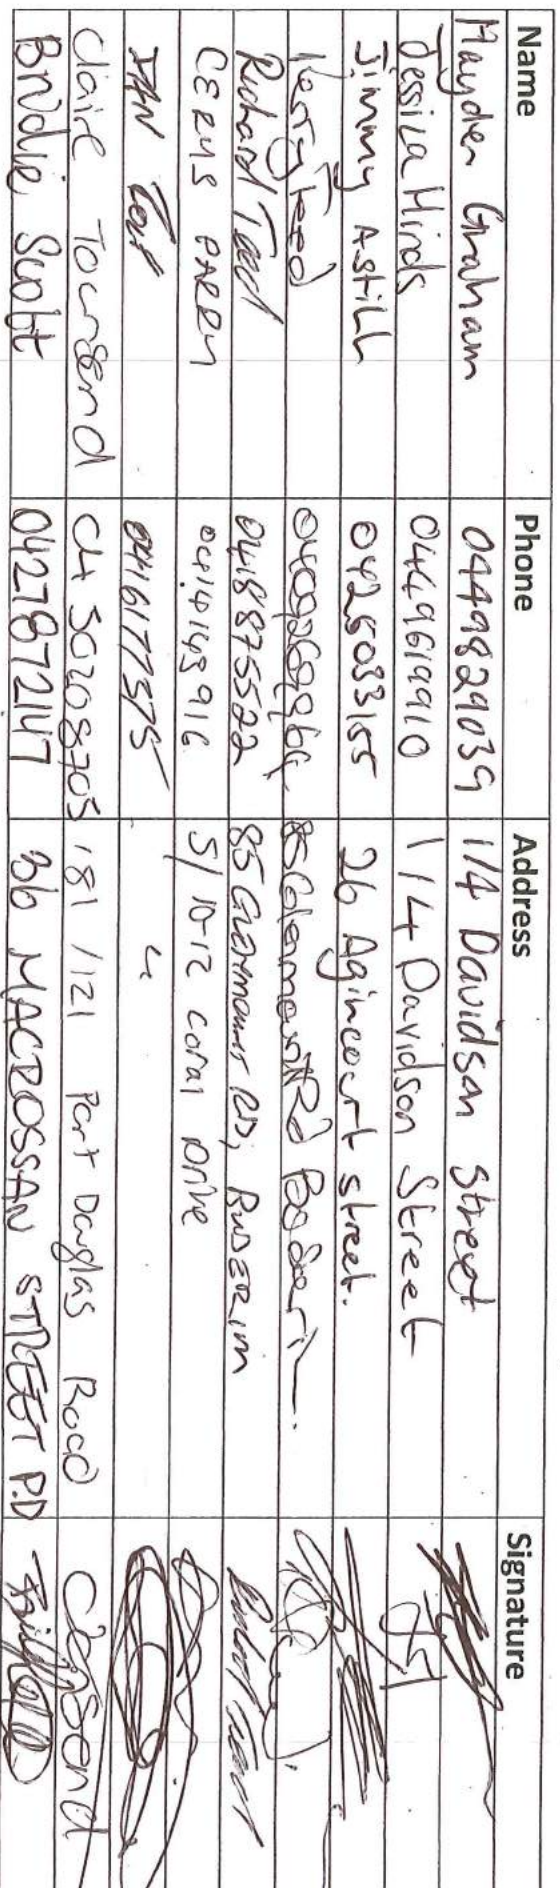 Name Phone Address Signature
Hayden Graham 0449829039 1/4 Davidson street
Jessica Hinds 0449619910 1/4 Davidson Street
Jimmy Astill 0425033155 26 Agincourt street.
Kerry Teed 85
Richard Teed 0418875522 85 RD, BUDERIM
CERYS PARRY 0414145916 5/10-12 coral Drive
IAN 0416177575 "
Claire Townsend 181/121 Port Douglas Road
Bridie Scott 0427872147 36 MACROSSAN STREET P.D